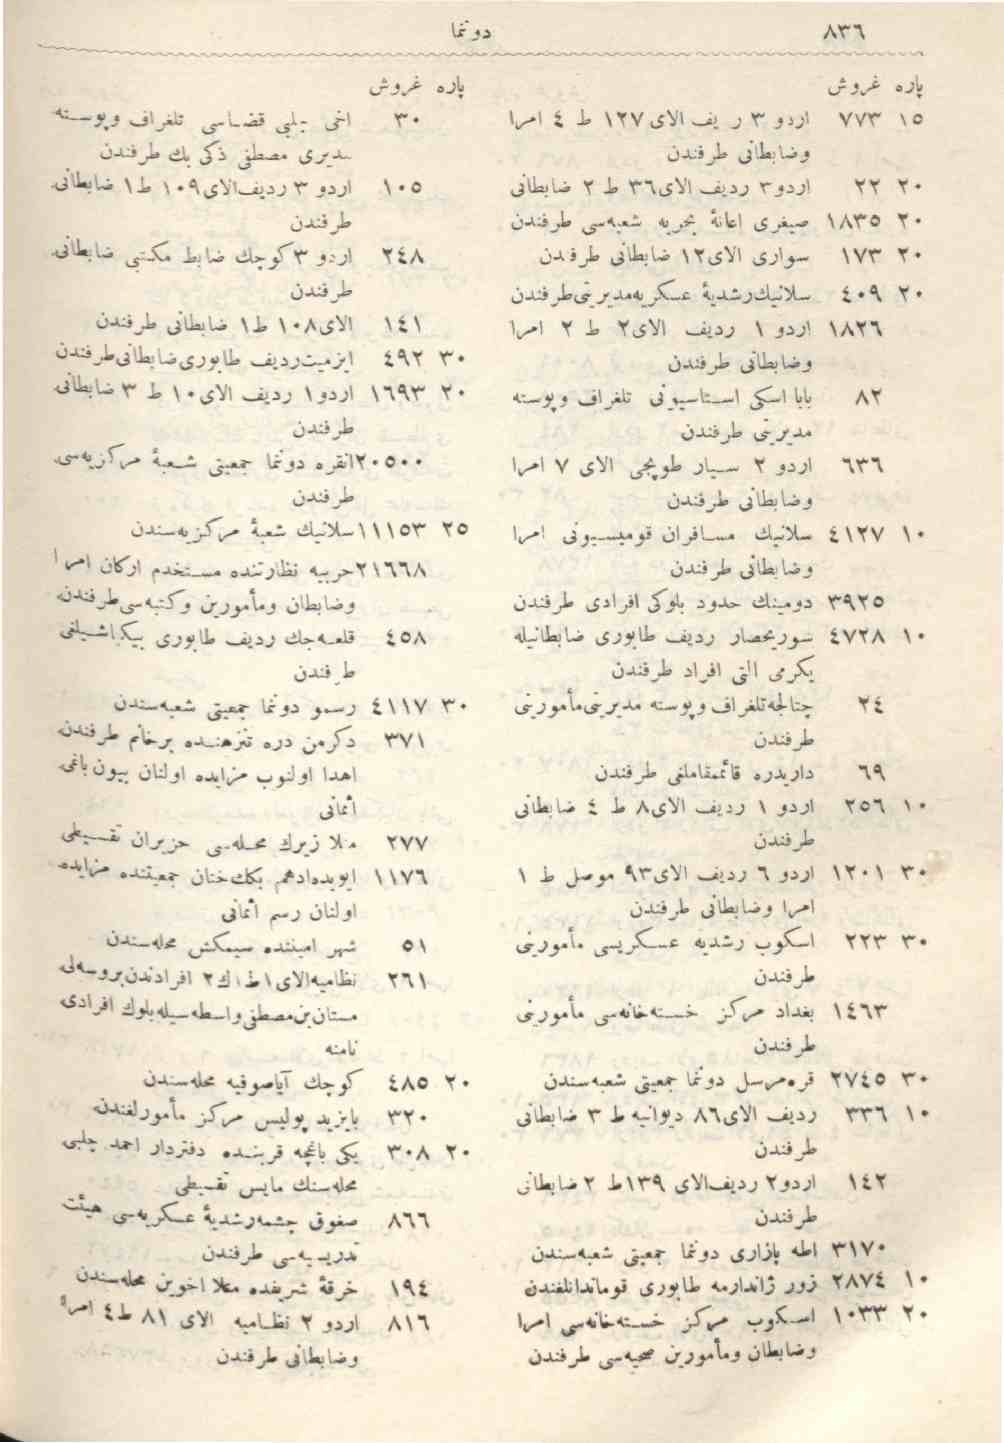 ٨٣٦ دوننما
پاره غروش
١٥ ٧٧٣ اردو ٣ ردیف الای ١٢٧ ط ٤ امرا
وضابطانی طرفندن
٢٠ ٢٢ اردو ٣ ردیف الای ٣٦ ط ٢ ضابطانی
٢٠ ١٨٣٥ صیغری اعانهٔ بحریه شعبه‌سی طرفندن
٢٠ ١٧٣ سواری الای ١٢ ضابطانی طرفندن
٢٠ ٤٠٩ سلانیك رشدیهٔ عسکریه مدیریتی طرفندن
١٨٢٦ اردو ١ ردیف الای ٢ ط ٢ امرا
وضابطانی طرفندن
٨٢ بابا اسکی استاسیونی تلغراف وپوسته
مدیریتی طرفندن
٦٣٦ اردو ٢ سیار طوپجی الای ٧ امرا
وضابطانی طرفندن
١٠ ٤١٢٧ سلانیك مسافران قومیسیونی امرا
وضابطانی طرفندن
٣٩٢٥ دومینك حدود بلوکی افرادی طرفندن
١٠ ٤٧٢٨ سوریحصار ردیف طابوری ضابطانیله
یکرمی التی افراد طرفندن
٢٤ چتالجه تلغراف وپوسته مدیریتی مأمورینی
طرفندن
٦٩ داریدره قائممقاملغی طرفندن
١٠ ٢٥٦ اردو ١ ردیف الای ٨ ط ٤ ضابطانی
طرفندن
٣٠ ١٢٠١ اردو ٦ ردیف الای ٩٣ موصل ط ١
امرا وضابطانی طرفندن
٣٠ ٢٢٣ اسکوب رشدیه عسکریسی مأمورینی
طرفندن
١٤٦٣ بغداد مرکز خسته‌خانه‌سی مأمورینی
طرفندن
٣٠ ٢٧٤٥ قره‌مرسل دوننما جمعیتی شعبه‌سندن
١٠ ٣٣٦ ردیف الای ٨٦ دیوانیه ط ٣ ضابطانی
طرفندن
١٤٢ اردو ٢ ردیف الای ١٣٩ ط ٢ ضابطانی
طرفندن
٣١٧٠ اطه پازاری دوننما جمعیتی شعبه‌سندن
١٠ ٢٨٧٤ زور ژاندارمه طابوری قوماندانلغندن
٢٠ ١٠٣٣ اسکوب مرکز خسته‌خانه‌سی امرا
وضابطان ومأمورین صحیه‌سی طرفندن
پاره غروش
٣٠ اخی چلبی قضاسی تلغراف وپوسته
مدیری مصطفی ذکی بك طرفندن
١٠٥ اردو ٣ ردیف الای ١٠٩ ط ١ ضابطانی
طرفندن
٢٤٨ اردو ٣ کوچك ضابط مکتبی ضابطانی
طرفندن
١٤١ الای ١٠٨ ط ١ ضابطانی طرفندن
٣٠ ٤٩٢ ایزمیت ردیف طابوری ضابطانی طرفندن
٢٠ ١٦٩٣ اردو ١ ردیف الای ١٠ ط ٣ ضابطانی
طرفندن
٢٠٥٠٠ انقره دوننما جمعیتی شعبهٔ مرکزیه‌سی
طرفندن
٢٥ ١١١٥٣ سلانیك شعبهٔ مرکزیه‌سندن
٢١٦٦٨ حربیه نظارتنده مستخدم ارکان امرا
وضابطان ومأمورین وکتبه‌سی طرفندن
٤٥٨ قلعه‌جك ردیف طابوری بیکباشیلغی
طرفندن
٣٠ ٤١١٧ رسمو دوننما جمعیتی شعبه‌سندن
٣٧١ دکرمن دره تنزهنده برخانم طرفندن
اهدا اولنوب مزایده اولنان بیون باغی
اثمانی
٢٧٧ ملا زیرك محله‌سی حزیران تقسیطی
١١٧٦ ایوبده ادهم بکك ختان جمعیتنده مزایده
اولنان رسم اثمانی
٥١ شهر امیننده سیمکش محله‌سندن
٢٦١ نظامیه الای ١ ط ١ ك ٢ افرادندن بروسه‌لی
مستان بن مصطفی واسطه‌سیله بلوك افرادی
نامنه
٢٠ ٤٨٥ کوچك آیاصوفیه محله‌سندن
٣٢٠ بایزید پولیس مرکز مأمورلغندن
٢٠ ٣٠٨ یکی باغچه قربنده دفتردار احمد چلبی
محله‌سنك مایس تقسیطی
٨٦٦ صغوق چشمه رشدیهٔ عسکریه‌سی هیئت
تدریسیه‌سی طرفندن
١٩٤ خرقهٔ شریفده منلا اخوین محله‌سندن
٨١٦ اردو ٢ نظامیه الای ٨١ ط ٤ امرا
وضابطانی طرفندن